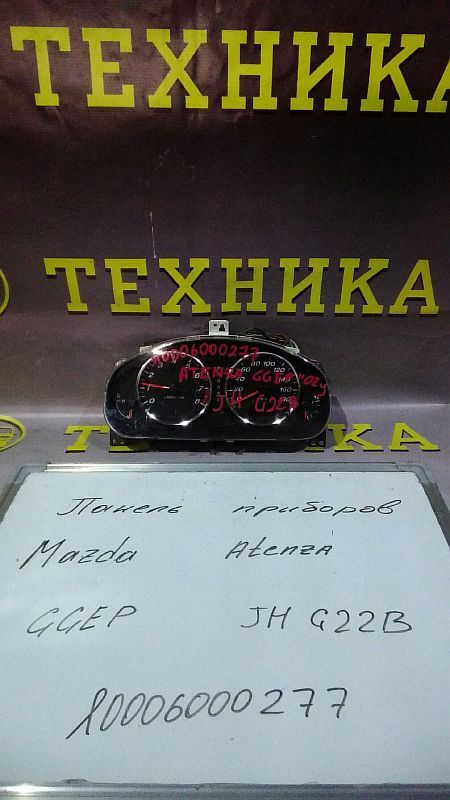 ТЕХНИКА
ТЕХНИКА
10006000277
ATENZA GGEP-02y
JH G22B
КА
Панель приборов
Mazda Atenza
GGEP JH G22B
10006000277